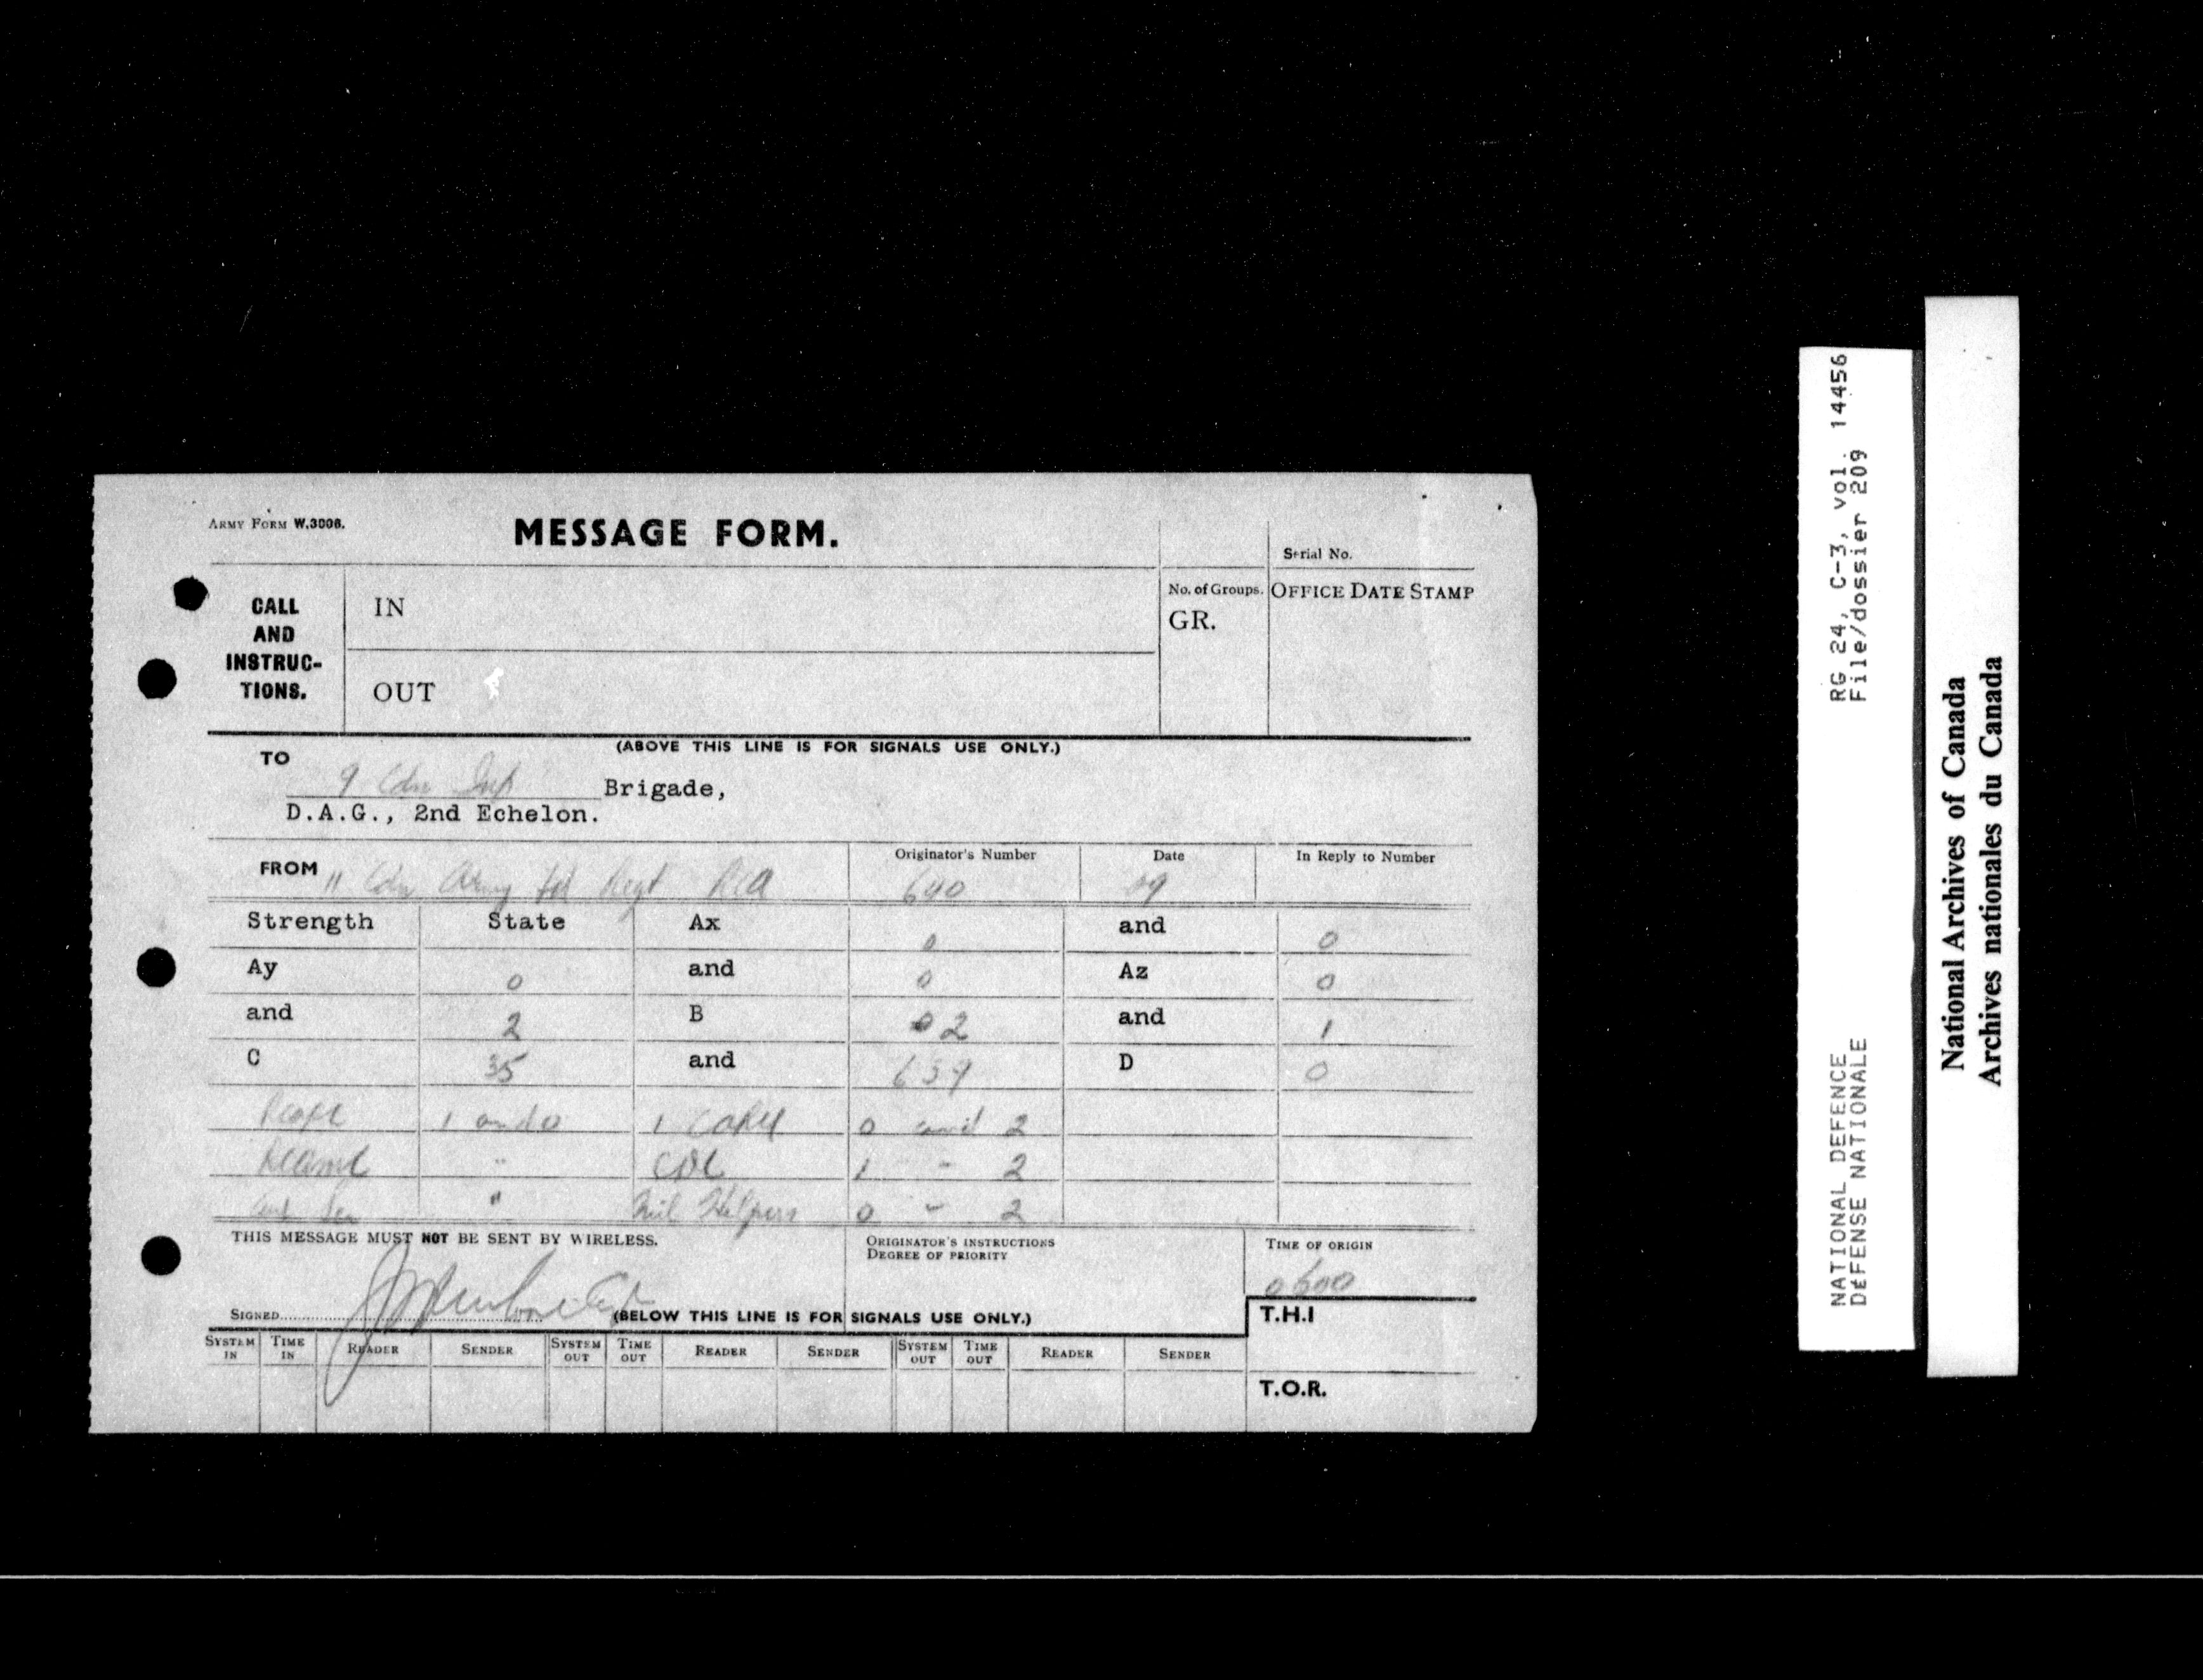 ARMY FORM W.3006.
MESSAGE FORM.
Serial No.
CALL AND INSTRUC- TIONS.
IN
OUT
No. of Groups.
GR.
OFFICE DATE STAMP
(ABOVE THIS LINE IS FOR SIGNALS USE ONLY.)
TO
9 Cdn Inf Brigade,
D.A.G., 2nd Echelon.
FROM 11 Cdn Army Fd Regt RCA
Originator's Number 640
Date 09
In Reply to Number
Strength State Ax 0 and 0
Ay 0 and 0 Az 0
and 2 B 02 and 1
C 35 and 639 D 0
1 and 0 0 and 2
" 1 - 2
" Helpers 0 - 2
THIS MESSAGE MUST NOT BE SENT BY WIRELESS.
ORIGINATOR'S INSTRUCTIONS
DEGREE OF PRIORITY
TIME OF ORIGIN
0600
SIGNED
(BELOW THIS LINE IS FOR SIGNALS USE ONLY.)
T.H.I
SYSTEM IN TIME IN READER SENDER SYSTEM OUT TIME OUT READER SENDER SYSTEM OUT TIME OUT READER SENDER
T.O.R.
NATIONAL DEFENCE RG 24, C-3, vol. 14456
DÉFENSE NATIONALE File/dossier 209
National Archives of Canada
Archives nationales du Canada